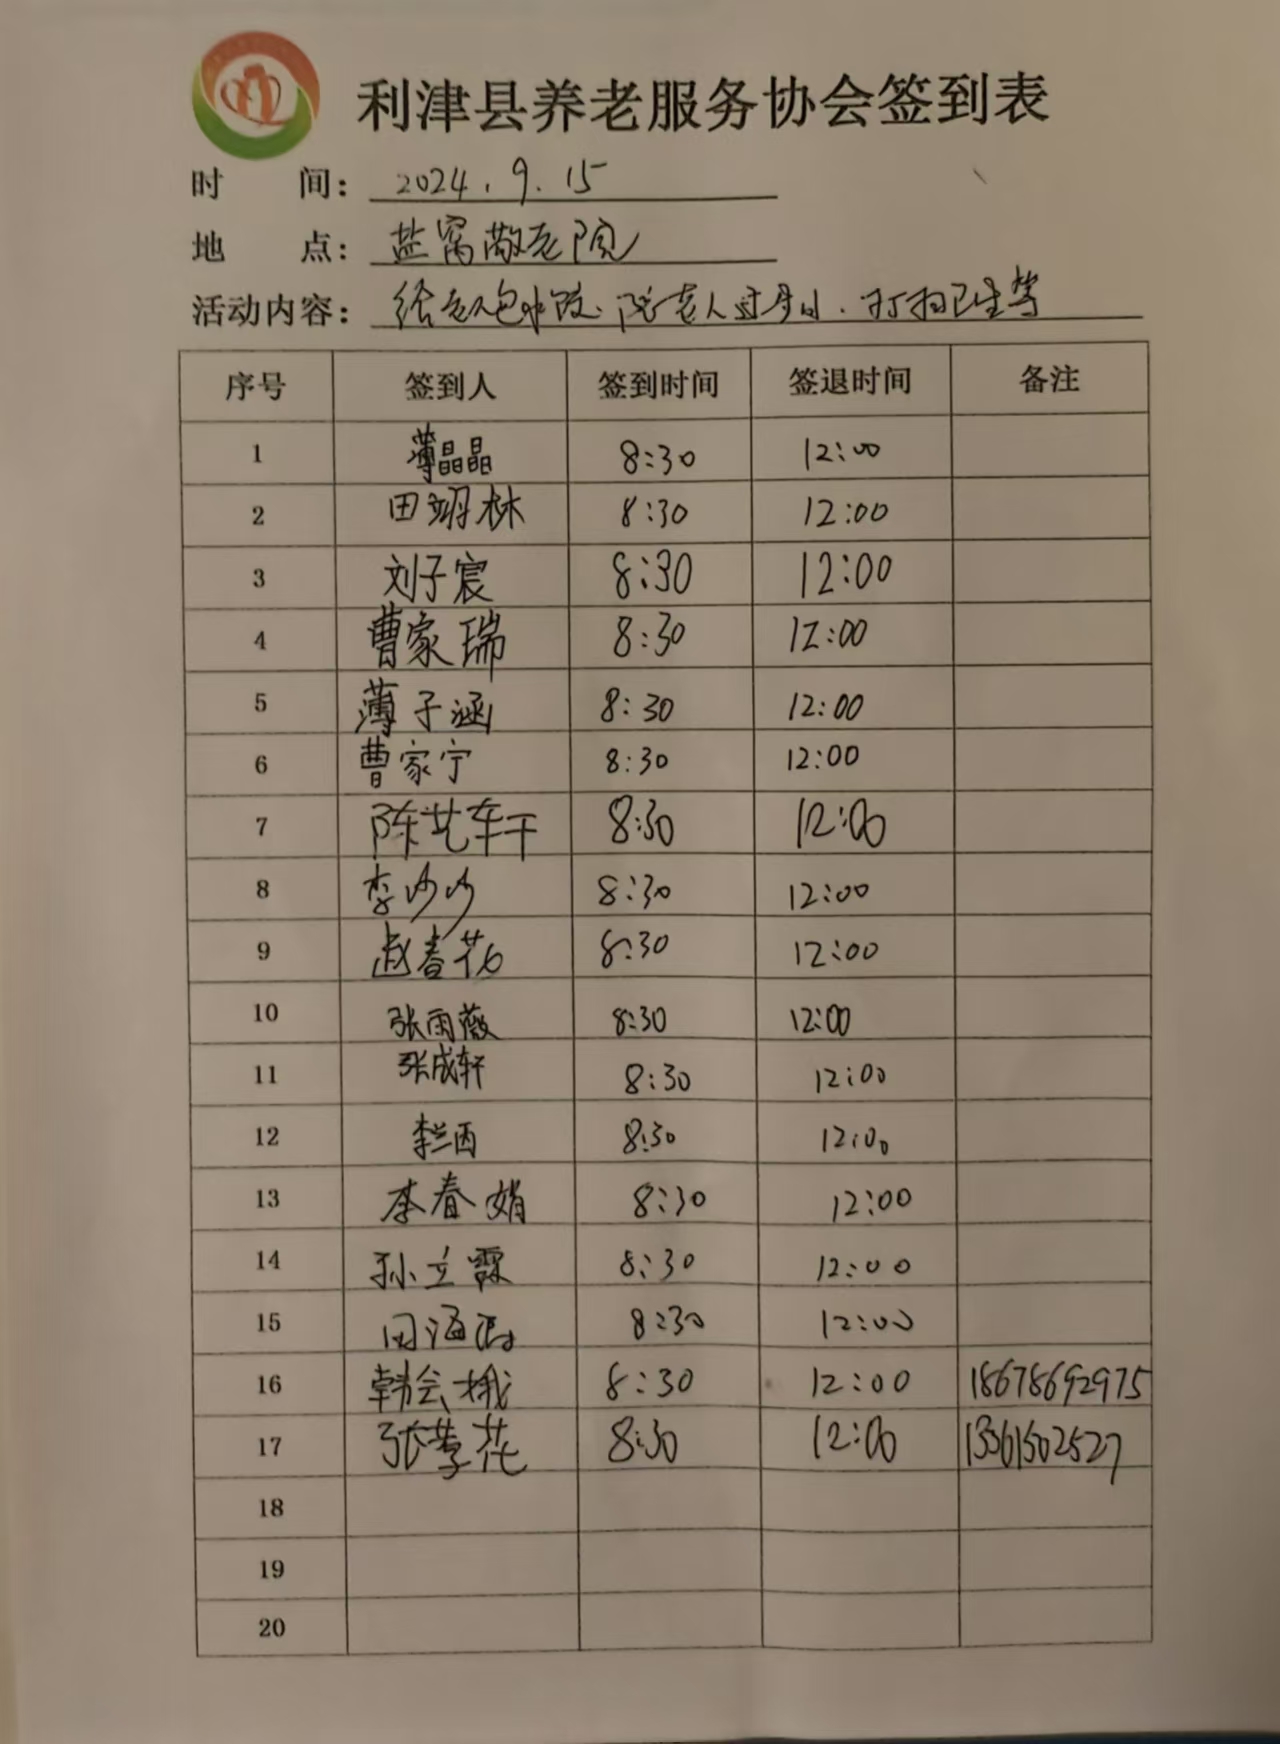 利津县养老服务协会签到表
时 间: 2024.9.15
地 点: 盐窝敬老院
活动内容: 给老人包水饺、陪老人过生日、打扫卫生等
序号 签到人 签到时间 签退时间 备注
1 薄晶晶 8:30 12:00
2 田翊林 8:30 12:00
3 刘子宸 8:30 12:00
4 曹家瑞 8:30 12:00
5 薄子涵 8:30 12:00
6 曹家宁 8:30 12:00
7 陈艺 8:30 12:00
8 李沙沙 8:30 12:00
9 赵春花 8:30 12:00
10 张雨薇 8:30 12:00
11 张成轩 8:30 12:00
12 李兰西 8:30 12:00
13 李春娟 8:30 12:00
14 孙立霖 8:30 12:00
15 海 8:30 12:00
16 韩会娥 8:30 12:00 18678692975
17 张花 8:30 12:00 13361502527
18
19
20